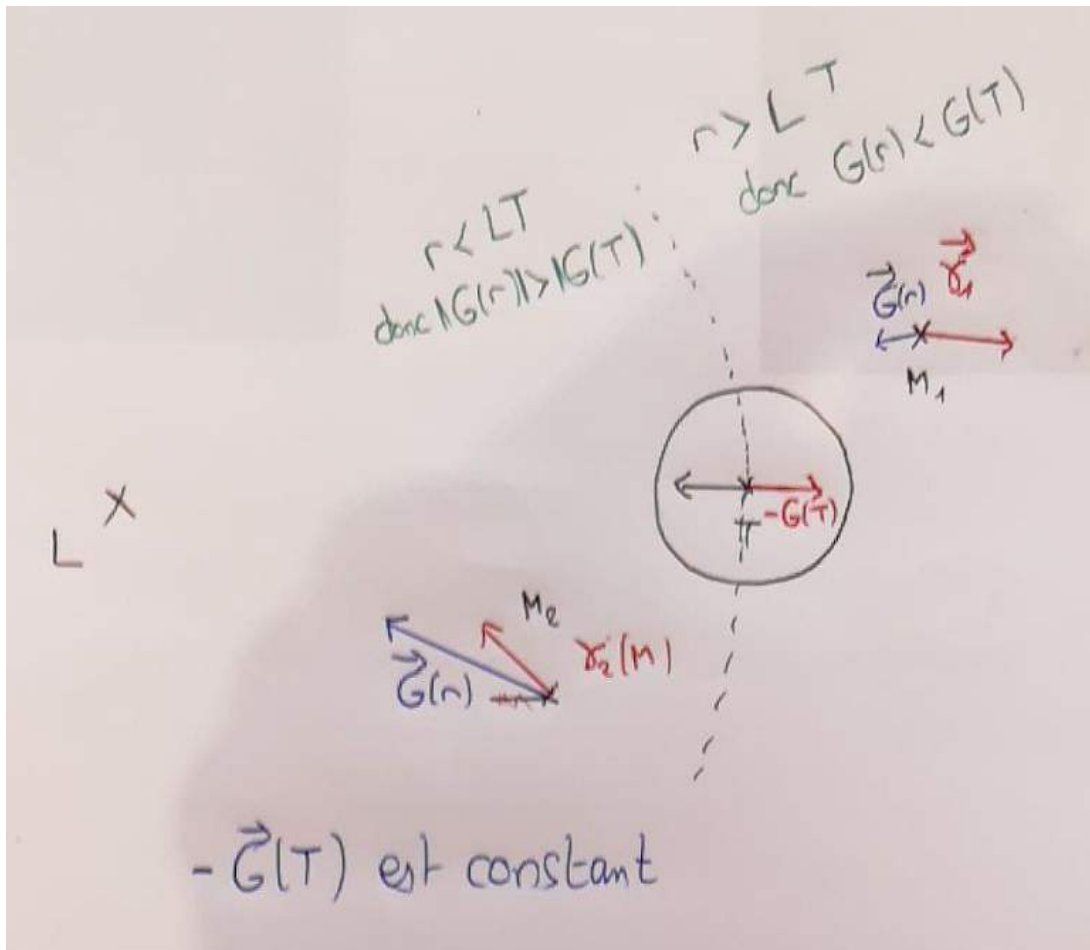 r > LT
donc G(r) < G(T)
r < LT
donc |G(r)| > |G(T)
G⃗(r) γ⃗₁
M₁
T -G(T)
L
M₂
G⃗(r) γ₂(M)
- G⃗(T) est constant